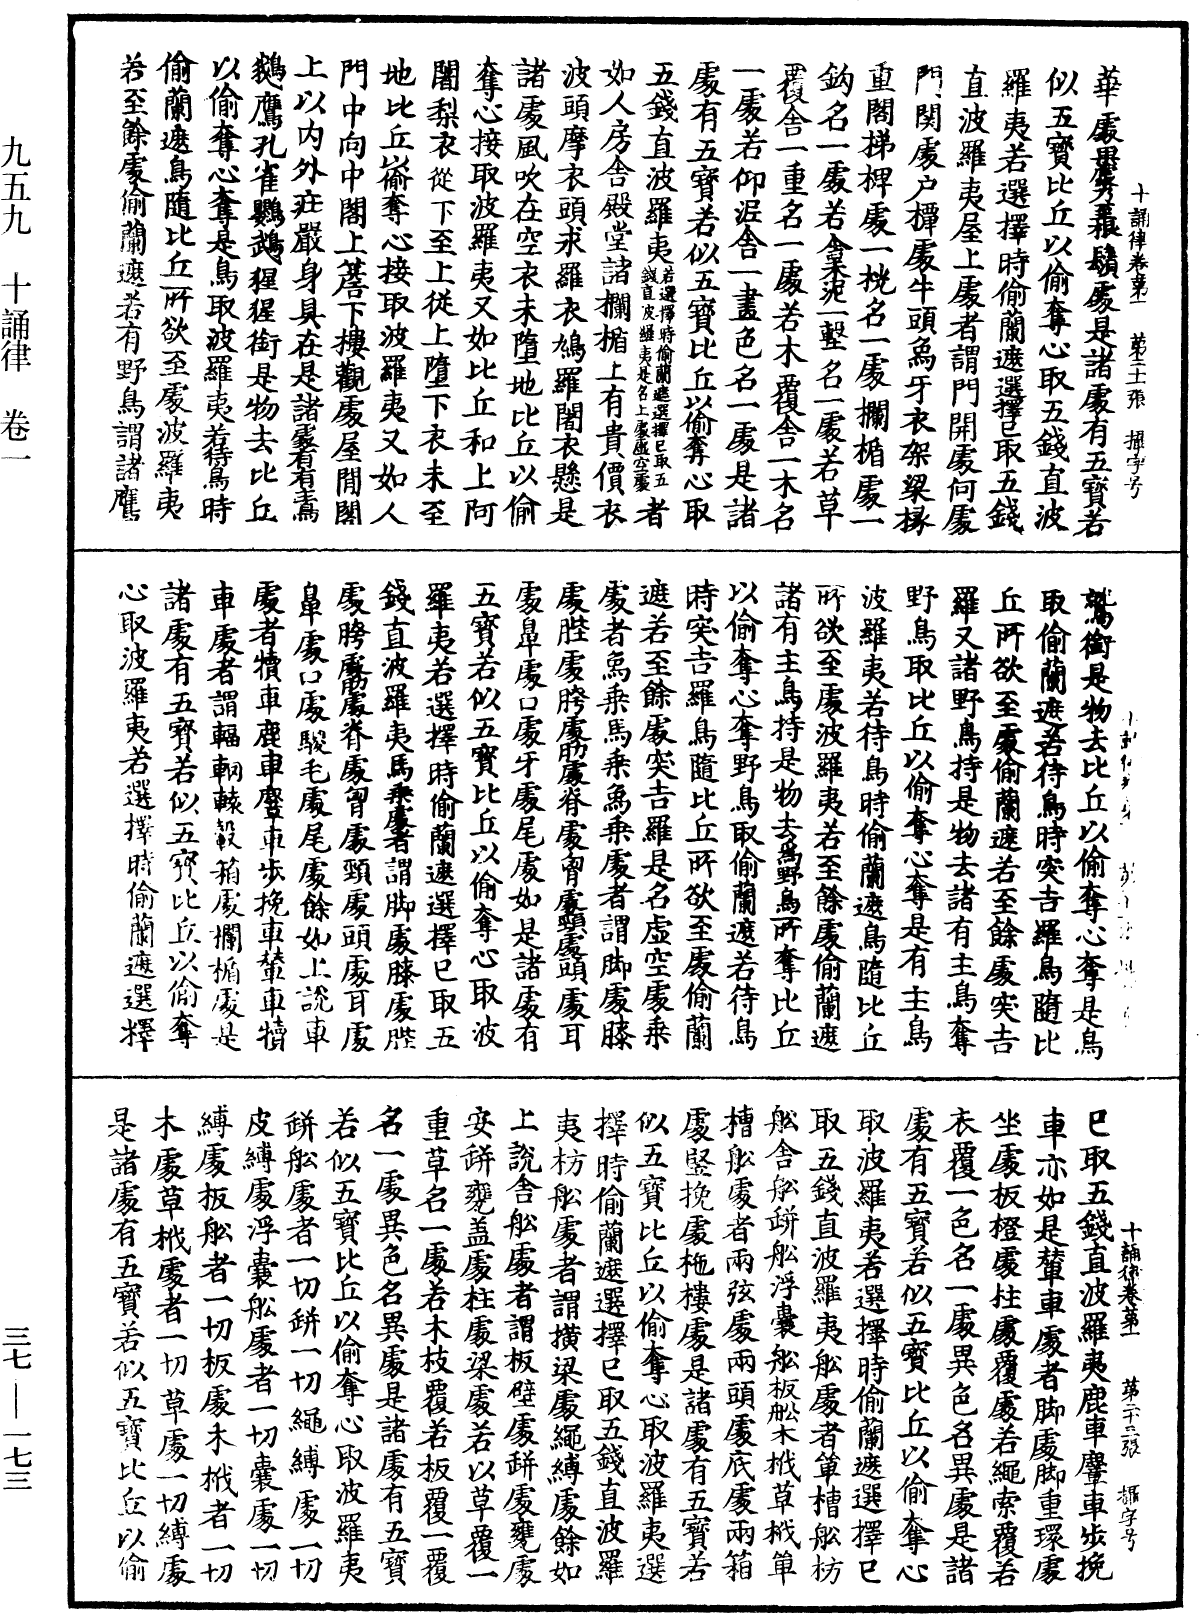 九五九　十誦律　卷一
三七—一七三
十誦律卷第一　第二十二張　攝字号
華處
似五寶比丘以偷奪心取五錢直波
羅夷若選擇時偷蘭遮選擇已取五錢
直波羅夷屋上處者謂門開處何處
門関處户橝處牛頭象牙衣架梁椽
重閣梯桯處一桄名一處欄楯處一
鈎名一處若
覆舍一重名一處若木覆舍一木名
一處若仰泥舍一畫色名一處是諸
處有五寶若似五寶比丘以偷奪心取
五錢直波羅夷若選擇時偷蘭遮選擇已取五錢直波羅夷是名上處虛空處者
如人房舍殿堂諸欄楯上有貴價衣
波頭摩衣頭求羅衣鳩羅闍衣懸是
諸處風吹在空衣未墮地比丘以偷
奪心接取波羅夷又如比丘和上阿
闍梨衣從下至上從上墮下衣未至
地比丘偷奪心接取波羅夷又如人
門中向中閣上菴下樓觀處屋間閣
上以内外莊嚴身具在是諸處若有
鵝鴈孔雀鸚鵡猩猩銜是物去比丘
以偷奪心奪是鳥取波羅夷若待鳥時
偷蘭遮鳥隨比丘所欲至處波羅夷
若至餘處偷蘭遮若有野鳥謂諸鷹
鷲銜是物去比丘以偷奪心奪是鳥
取偷蘭遮若待鳥時突吉羅鳥隨比
丘所欲至處偷蘭遮若至餘處突吉
羅又諸野鳥持是物去諸有主鳥奪
野鳥取比丘以偷奪心奪是有主鳥
波羅夷若待鳥時偷蘭遮鳥隨比丘
所欲至處波羅夷若至餘處偷蘭遮
諸有主鳥持是物去為野鳥所奪比丘
以偷奪心奪野鳥取偷蘭遮若待鳥
時突吉羅鳥隨比丘所欲至處偷蘭
遮若至餘處突吉羅是名虛空處乘
處者象乘馬乘象乘處者謂脚處膝
處䏶處胯處肋處脊處胷處頸處頭處耳
處鼻處口處牙處尾處如是諸處有
五寶若似五寶比丘以偷奪心取波
羅夷若選擇時偷蘭遮選擇已取五
錢直波羅夷馬乘處者謂脚處膝處䏶
處胯處肋處脊處胷處頸處頭處耳處
鼻處口處騣毛處尾處餘如上說車
處者犢車鹿車䭾車步挽車輦車犢
車處者謂輻輞轅轂箱處欄楯處是
諸處有五寶若似五寶比丘以偷奪
心取波羅夷若選擇時偷蘭遮選擇
十誦律卷第一　第二十三張　攝字号
已取五錢直波羅夷鹿車䭾車步挽
車亦如是輦車處者脚處脚重環處
坐處板橙處柱處覆處若繩索覆若
衣覆一色名一處異色名異處是諸
處有五寶若似五寶比丘以偷奪心
取波羅夷若選擇時偷蘭遮選擇已
取五錢直波羅夷舩處者箄槽舩枋
舩舍舩缾舩浮囊舩板舩木栰草栰箄
槽舩處者兩弦處兩頭處底處兩箱
處竪挽處柂樓處是諸處有五寶若
似五寶比丘以偷奪心取波羅夷選
擇時偷蘭遮選擇已取五錢直波羅
夷枋舩處者謂橫梁處繩縛處餘如
上說舍舩處者謂板壁處缾處甕處
安缾甕盖處柱處梁處若以草覆一
重草名一處若木枝覆若板覆一覆
名一處異色名異處是諸處有五寶
若似五寶比丘以偷奪心取波羅夷
缾舩處者一切缾一切繩縛處一切
皮縛處浮囊舩處者一切囊處一切
縛處板舩者一切板處木栰者一切
木處草栰處者一切草處一切縛處
是諸處有五寶若似五寶比丘以偷